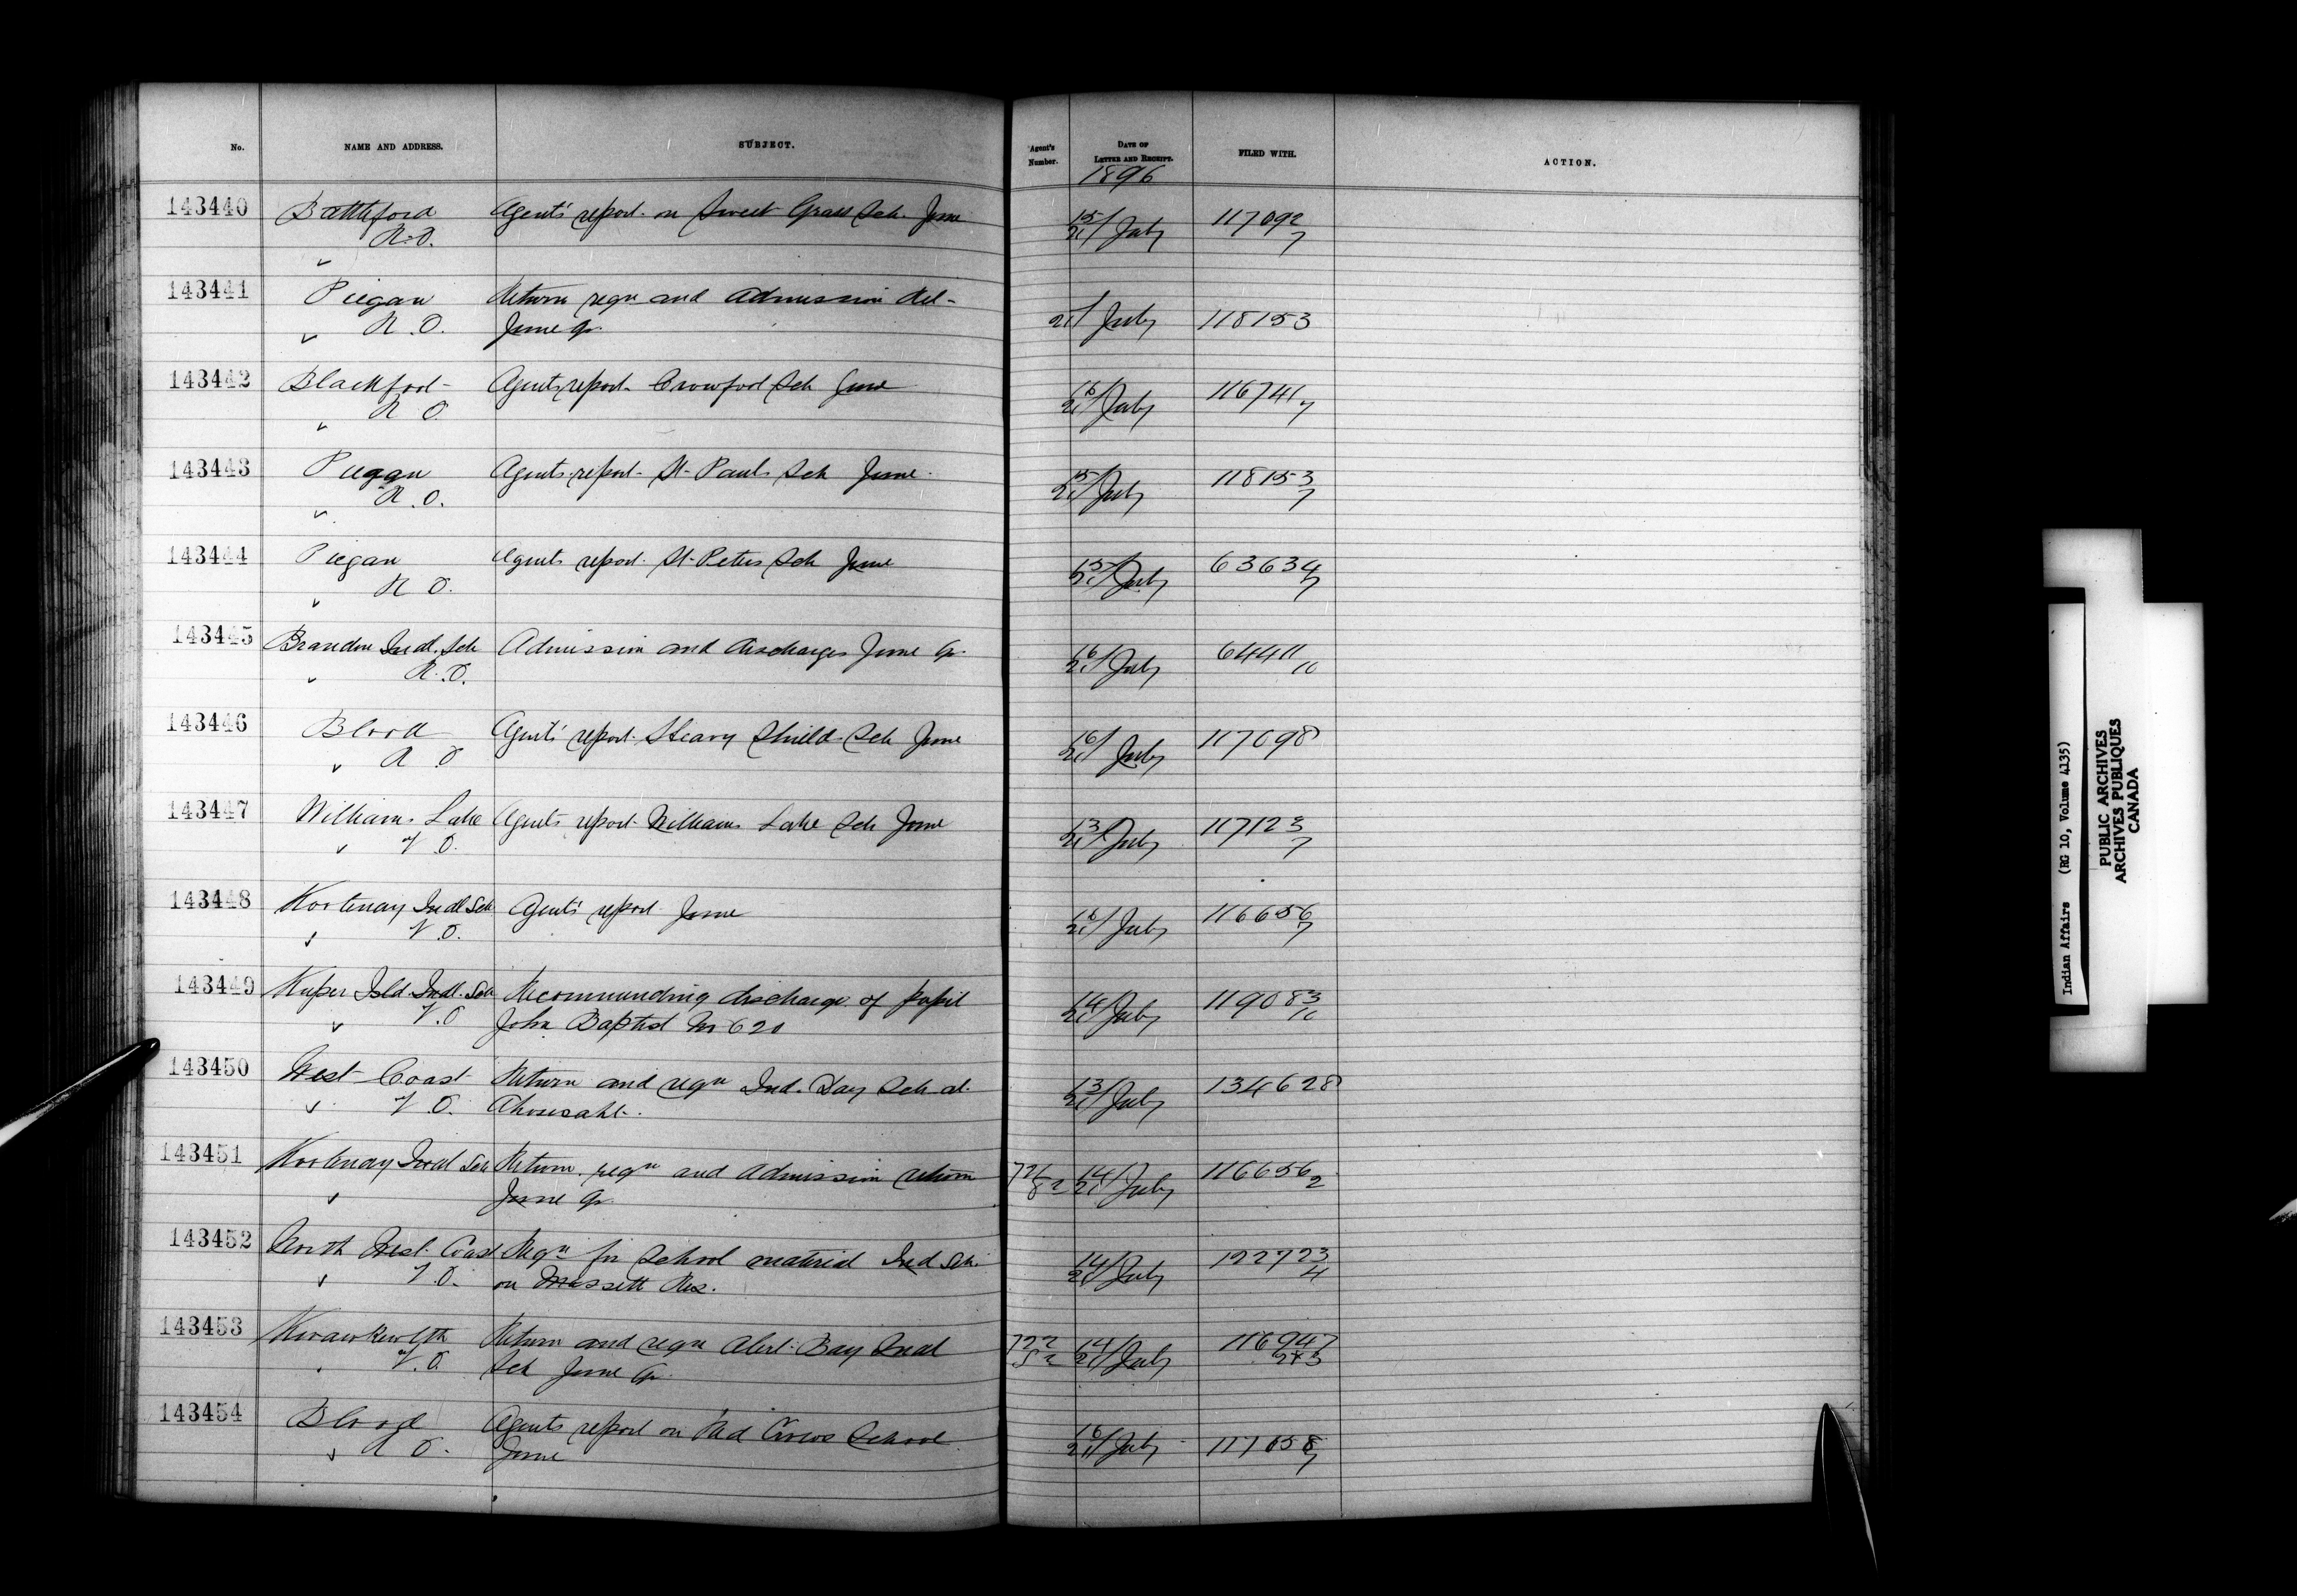 No. NAME AND ADDRESS. SUBJECT. Agent's Number. DATE OF LETTER AND RECEIPT. FILED WITH. ACTION.
1896
143440 Battleford Agents' report on Sweet Grass Sch. June 15/21 July 117092
R.O. 7
143441 Piegan Return reqn and admission Ret-
R.O. June qr. 21/ July 118153
143442 Blackfoot Agents report Crowfoot Sch June 16/21 July 116741
R O. 7
143443 Piegan Agents report St Pauls Sch June 15/21 July 118153
R.O. 7
143444 Piegan Agents report St Peters Sch June 15/21 July 63634
R O. 7
143445 Brandon Indl. Sch Admission and discharges June Qr. 16/21 July 64411
R.O. 10
143446 Blood Agents' report Heavy Shield Sch June 16/21 July 117098
R O
143447 Williams Lake Agents report Williams Lake Sch June 13/21 July 117123
V O. 7
143448 Kootenay Indl Sch Agents' report June 16/21 July 116656
V.O. 7
143449 Kuper Isld. Indl. Sch Recommending discharge of pupil 14/21 July 119083
V.O John Baptist No 620 10
143450 West Coast Return and reqn Ind. Day Sch at 13/21 July 134628
V O. Ahousaht.
143451 Kootenay Indl Sch Return reqn and admission return 14/21 July 116656
June qr 2
143452 North West Coast Reqn for School material Ind Sch. 14/21 July 122723
V.O. on Massett Res. 4
143453 Kwawkewlth Return and reqn Alert Bay Indl 14/21 July 116947
V.O. Sch June Qr 2+3
143454 Blood Agents report on Red Crows School 16/21 July 117058
R O. June 7
Indian Affairs (RG 10, Volume 4135)
PUBLIC ARCHIVES
ARCHIVES PUBLIQUES
CANADA